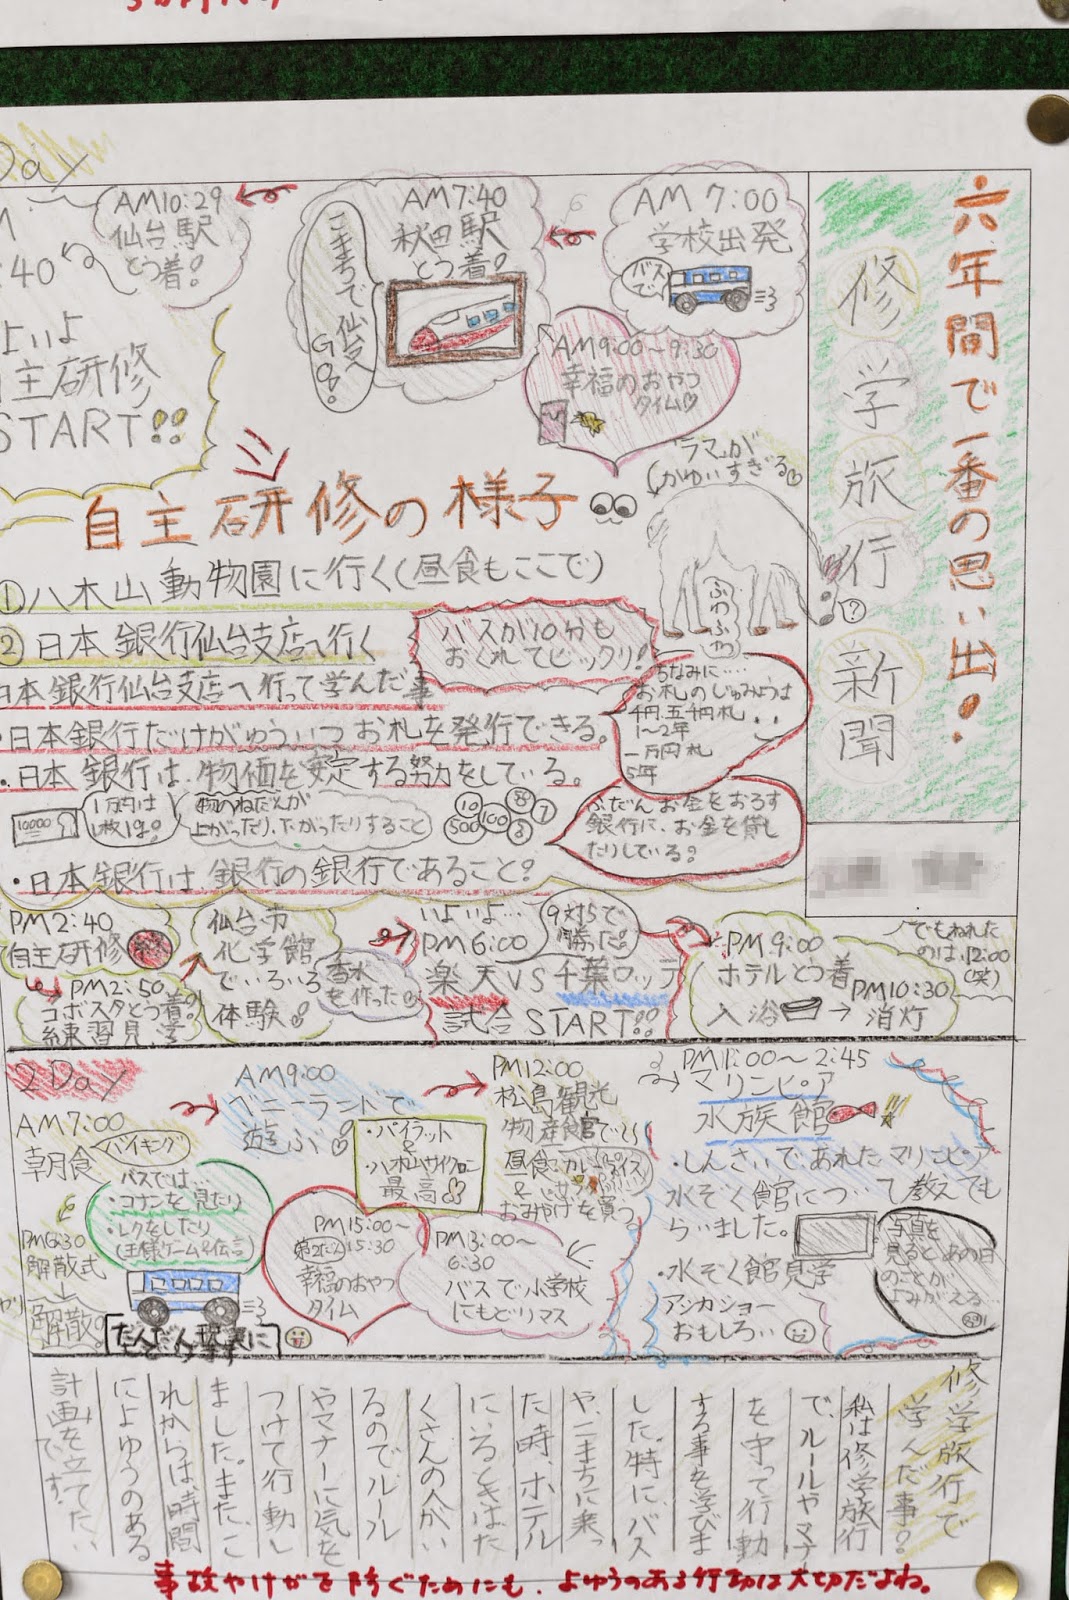 六年間で一番の思い出！
修学旅行新聞
Day
AM 7:00
学校出発
バスでゴー
AM7:40
秋田駅
とう着！
こまちで仙台へ
GO!
AM9:00〜9:30
幸福のおやつ
タイム♡
AM10:29
仙台駅
とう着！
:40
よいよ
自主研修
START!!
自主研修の様子
「ラマ」が
かゆいすぎる
ふわふわ
①八木山動物園に行く(昼食もここで)
②日本銀行仙台支店へ行く
バスが10分も
おくれてビックリ！
日本銀行仙台支店へ行って学んだ事
・日本銀行だけがゆういつお札を発行できる。
ちなみに……
お札のじゅみょうは
千円、五千円札
1〜2年
一万円札
5年
・日本銀行は、物価を安定する努力をしている。
10000
1万円は
1枚1g!
物のねだんが
上がったり、下がったりすること
10
500
100
ふだんお金をおろす
銀行に、お金を貸し
たりしている？
・日本銀行は銀行の銀行であること！
PM2:40
自主研修
終
PM2:50
コボスタとう着！
練習見学
仙台市
化学館
でいろいろ
体験！
香水
を作った
いよいよ…
PM6:00
楽天VS千葉ロッテ
試合START!!
9対5で
勝った！
PM9:00
ホテルとう着
入浴→
PM10:30
消灯
でもねれた
のは、12:00
(笑)
2 Day
AM7:00
朝食
バイキング
AM9:00
ベニーランドで
遊ぶ♡
・パイラット
&
・八木山サイクロン
最高
PM12:00
松島観光
物産館で〜
昼食:カレーライス
おみやげを買う
PM1:00〜2:45
マリンピア
水族館
・しんさいで、あれたマリンピア
水ぞく館について教えても
らいました。
写真を
見ると、あの日
のことが
よみがえる…
・水ぞく館見学
アシカショー
おもしろ…
PM3:00〜
6:30
バスで小学校
にもどりマス
PM15:00〜
15:30
第2だ2
幸福のおやつ
タイム
バスでは…
・コナンを見たり
・レクをしたり
(王様ゲーム&伝言)
PM6:30
解散式
↓
解散。
だんだん
修学旅行で
学んだ事？
私は修学旅行
で、ルールやマナー
を守って行動
する事を学びま
した。特に、バス
や、こまちに乗っ
た時、ホテル
にいるときはた
くさんの人がい
るのでルール
やマナーに気を
つけて行動し
ました。また、こ
れからは、時間
によゆうのある
計画を立てたい
です。
事故やけがを防ぐためにも、よゆうのある行動は大切だよね。